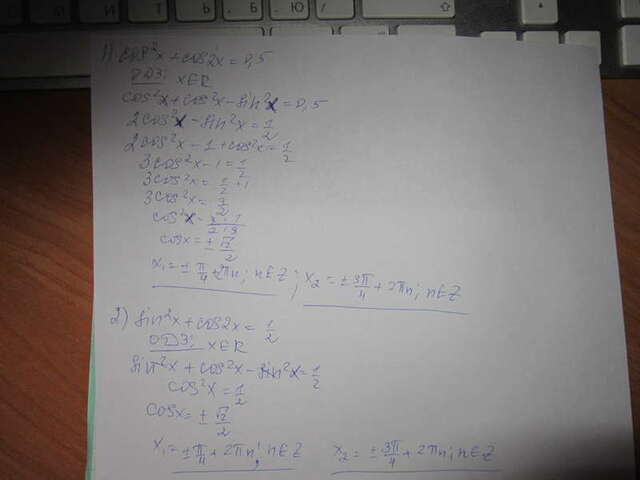 1) cos²x + cos2x = 0,5
ОДЗ: x∈R
cos²x + cos²x - sin²x = 0,5
2cos²x - sin²x = 1/2
2cos²x - 1 + cos²x = 1/2
3cos²x - 1 = 1/2
3cos²x = 1/2 + 1
3cos²x = 3/2
cos²x = 3·1/2·3
cosx = ± √2/2
x₁ = ± π/4 + 2πn; n∈Z ; x₂ = ± 3π/4 + 2πn; n∈Z
2) sin²x + cos2x = 1/2
ОДЗ: x∈R
sin²x + cos²x - sin²x = 1/2
cos²x = 1/2
cosx = ± √2/2
x₁ = ± π/4 + 2πn; n∈Z x₂ = ± 3π/4 + 2πn; n∈Z